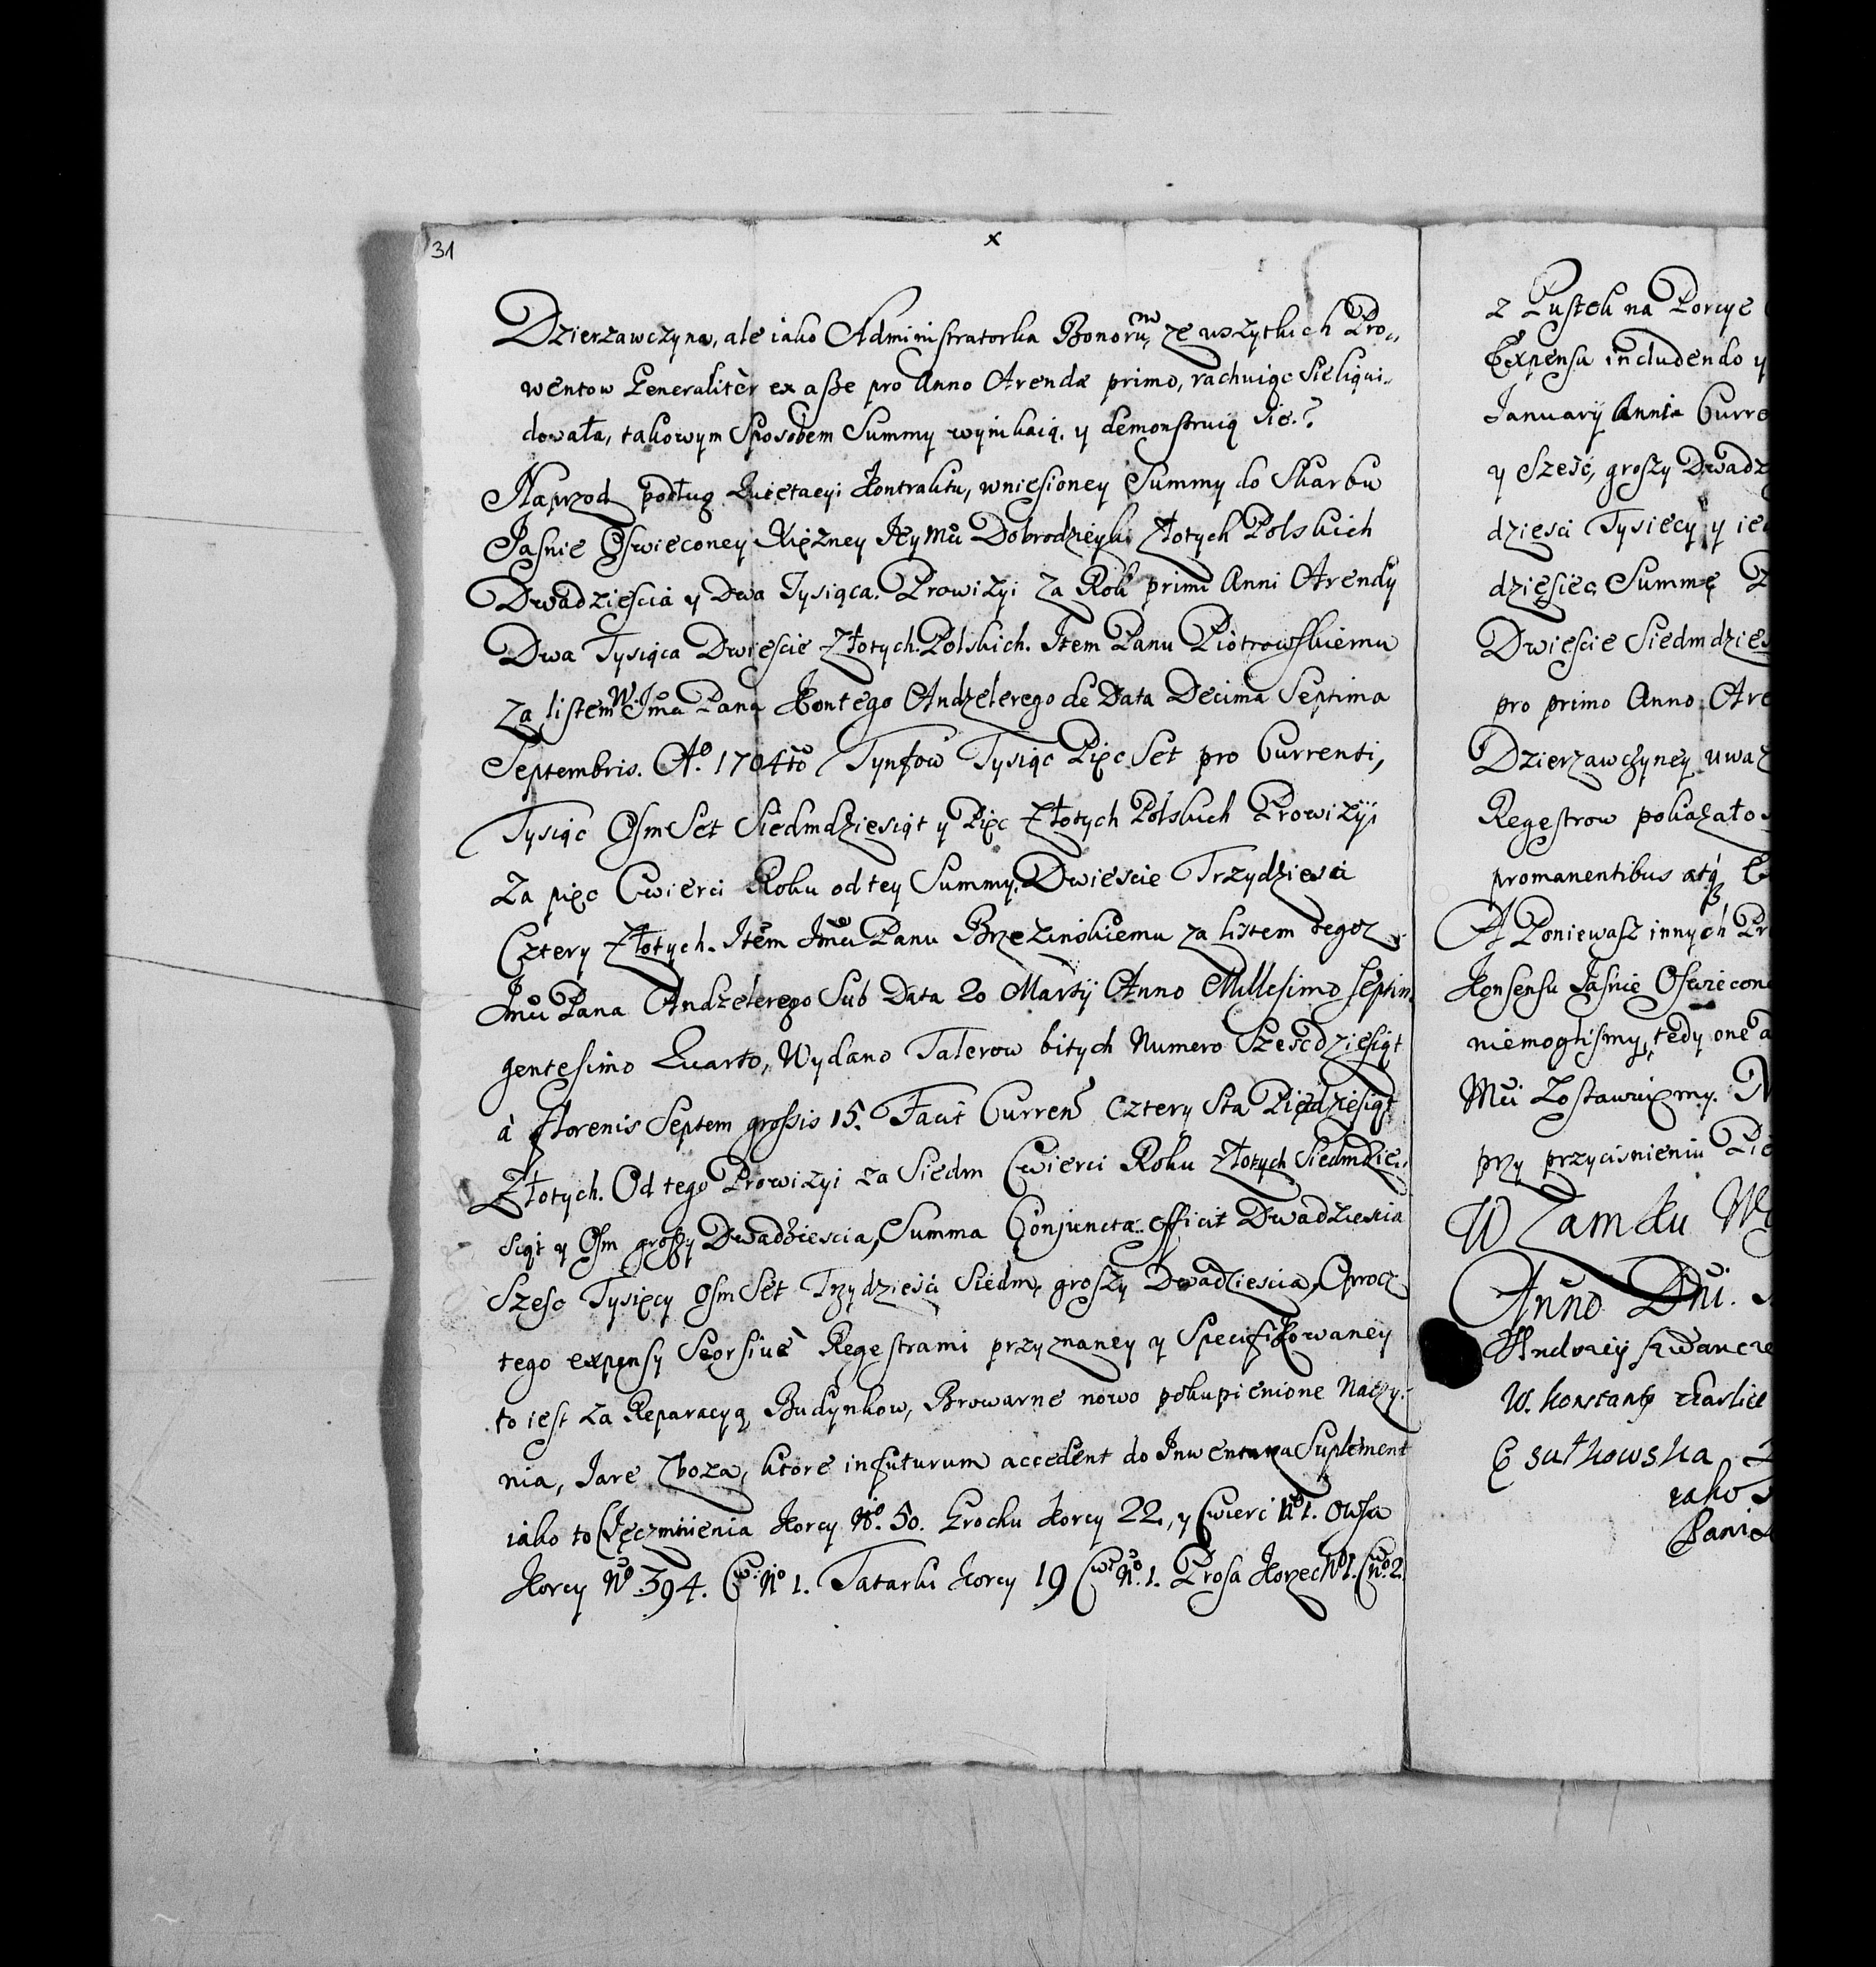 31
x
Dzierzawczyna, ale iako Administratorka Bonorum, ze wszytkich Pro„
wentow Generalitèr ex asse pro Anno Arendæ primo, rachuiąc się liqui„
dowała, takowym Sposobem Summy wynikaią, y demonstruią się.
Naprzod podług Quietacyi Kontraktu, wniesioney Summy do Skarbu
Jasnie Oswieconey Xiężney Jey Mci Dobrodzieyki Złotych Polskich
Dwadziescia y Dwa Tysiąca. Prowizyi za Rok primi Anni Arendy
Dwa Tysiąca Dwiescie Złotych Polskich. Item Panu Piotrowskiemu
za listem W. Jmci Pana Kontego Andzelerego de Data Decima Septima
Septembris. Ao. 1704to Tynfow Tysiąc Pięc Set pro Currenti,
Tysiąc Osm Set Siedmdziesiąt y Pięc Złotych Polskich Prowizÿi
za pięc Cwierci Roku od tey Summy, Dwiescie Trzydziesci
Cztery Złotych. Item Jmci Panu Brzezinskiemu za listem tegoz
Jmci Pana Andzelerego Sub Data 20 Martÿ Anno Millesimo septin
gentesimo Quarto, Wydano Talerow bitych Numero Szescdziesiąt
à florenis Septem grossis 15. Facit Curren. Cztery Sta Pięcdziesiąt
Złotych. Od tego Prowizyi za Siedm Cwierci Roku Złotych Siedmdzie„
siąt y Osm groszy Dwadziescia, Summa Conjuncta efficit Dwadziescia
Szesc Tysięcy Osm Set Trzydziesci Siedm, groszy Dwadziescia, Oprocz
tego expensy Seorsivè Regestrami przyznaney y Specifikowaney
to iest za Reparacyą Budynkow, Browarne nowo pokupienione Naczy„
nia, Jare Zboza, ktore in futurum accedent do Inwentarza Suplement
iako to Jęczmienia Korcy No. 50. Grochu Korcy 22., y Cwierc No 1. Owsa
Korcy No 394. Cw: No 1. Tatarki Korcy 19 Cw: No. 1. Prosa Korzec No 1. C. No 2.
z Pustek na Porcye
Expensa includendo y
Januarÿ Anni Curre
y Szesc, groszy Dwadz
dziesci Tysiecy y ied
dziesiec Summę
Dwiescie Siedmdzies
pro primo Anno Are
Dzierzawczyney uwaz
Regestrow pokazało
promanentibus atq
A Poniewasz innych Pr
Konsensu Jasnie Oswiecone
niemoglismy, tedy one
Mci Zostawuiemy.
przy przycisnieniu Pie
W Zamku
Anno Dni.
Andrzej
W. Konstanty
iako
Panie